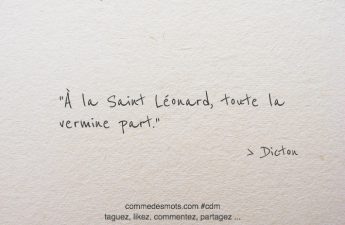 "À la Saint Léonard, toute la
vermine part."
> Dicton
commedesmots.com #cdm
taguez, likez, commentez, partagez ...